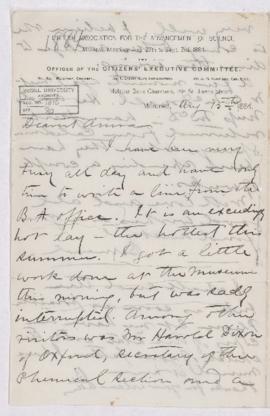 BRITISH ASSOCIATION FOR THE ADVANCEMENT OF SCIENCE.
OFFICES OF THE CITIZENS' EXECUTIVE COMMITTEE.
Montreal, Aug 15th 1884.
McGILL UNIVERSITY
ARCHIVES
Dear Anna
I have been very
busy all day and have only
time to write a line from the
B.A office. It is an exceedingly
hot day – the hottest this
summer. I got a little
work done at the Museum
this morning, but was sadly
interrupted. Among other
visitors was Mr Harold Dixon
of Oxford, Secretary of the
Chemical Section and a